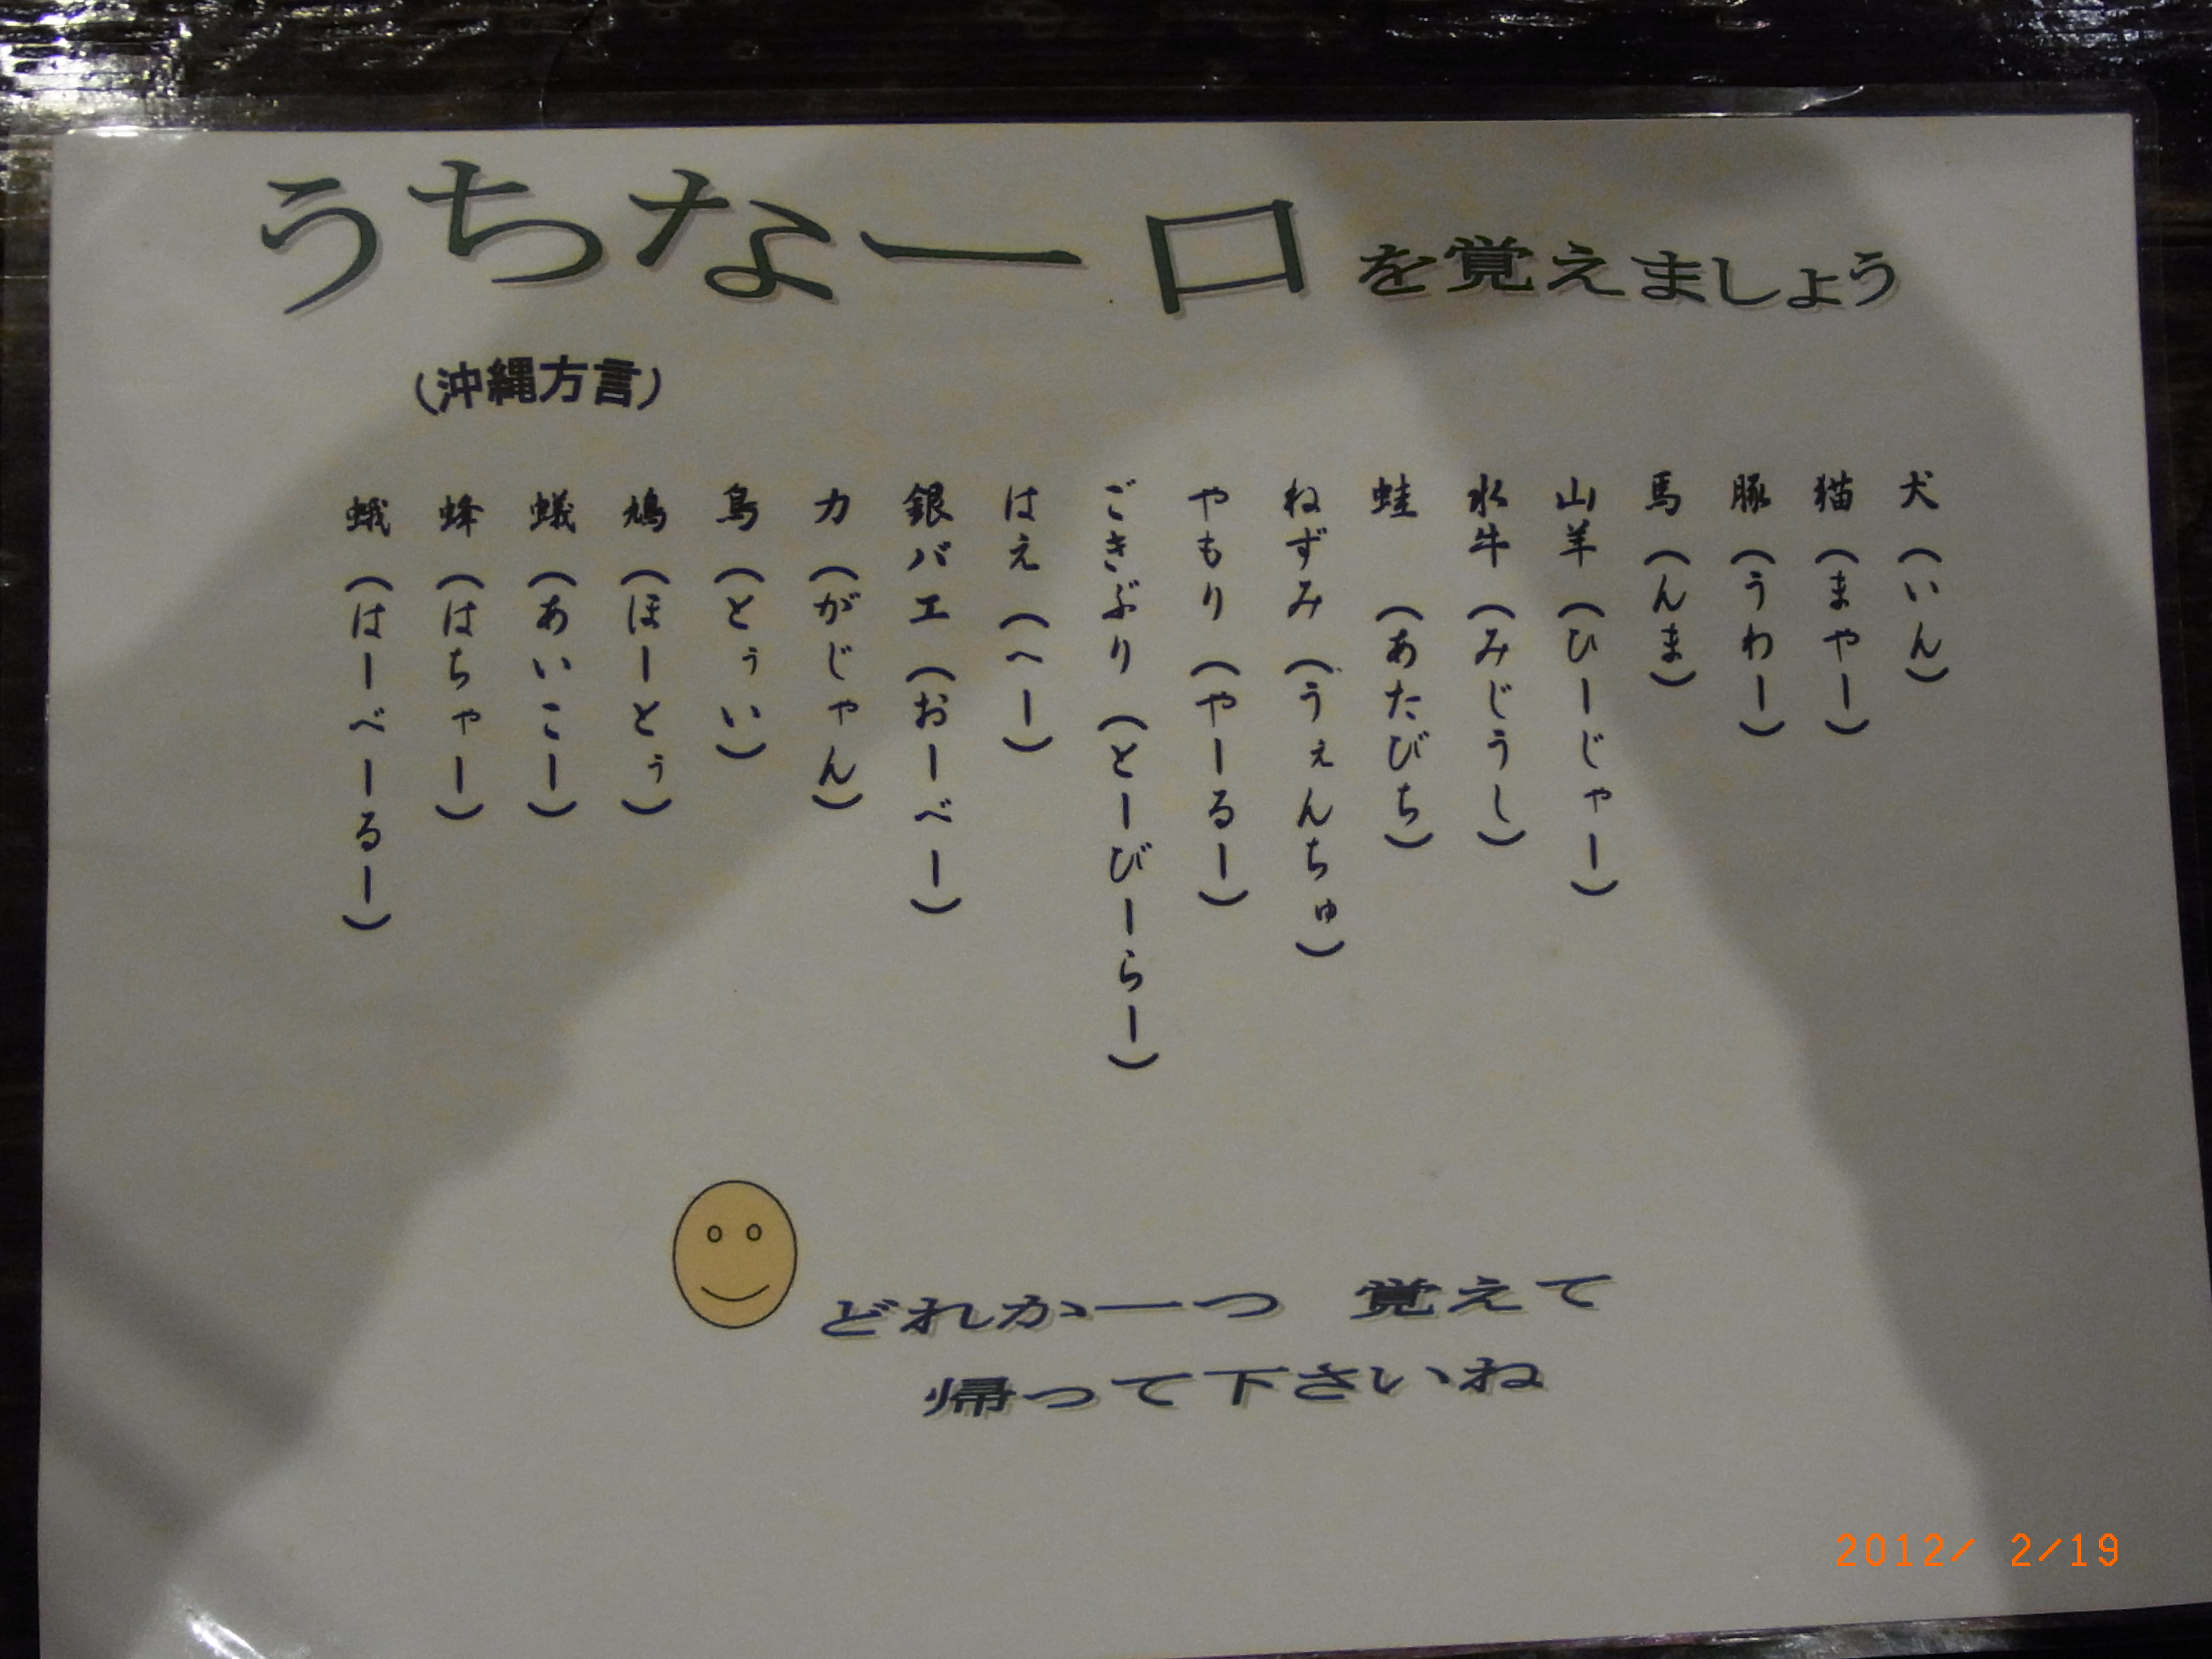 うちなー口を覚えましょう
(沖縄方言)
犬(いん)
猫(まやー)
豚(うわー)
馬(んま)
山羊(ひーじゃー)
水牛(みじうし)
蛙(あたびち)
ねずみ(うぇんちゅ)
やもり(やーるー)
ごきぶり(とーびーらー)
はえ(へー)
銀バエ(おーべー)
カ(がじゃん)
鳥(とぅい)
鳩(ほーとぅ)
蟻(あいこー)
蜂(はちゃー)
蛾(はーべーるー)
どれか一つ 覚えて
帰って下さいね
2012/ 2/19